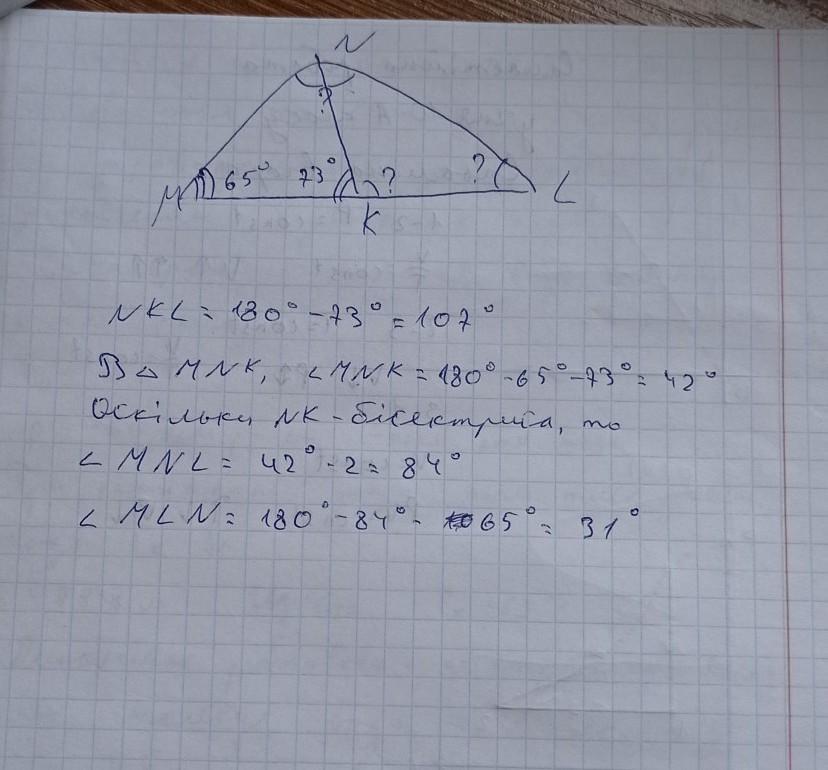 N
?
65° 73° ? ?
M K L
NKL = 180° - 73° = 107°
В △ MNK, ∠MNK = 180° - 65° - 73° = 42°
Оскільки NK - бісектриса, то
∠ MNL = 42° · 2 = 84°
∠ MLN = 180° - 84° - 65° = 31°